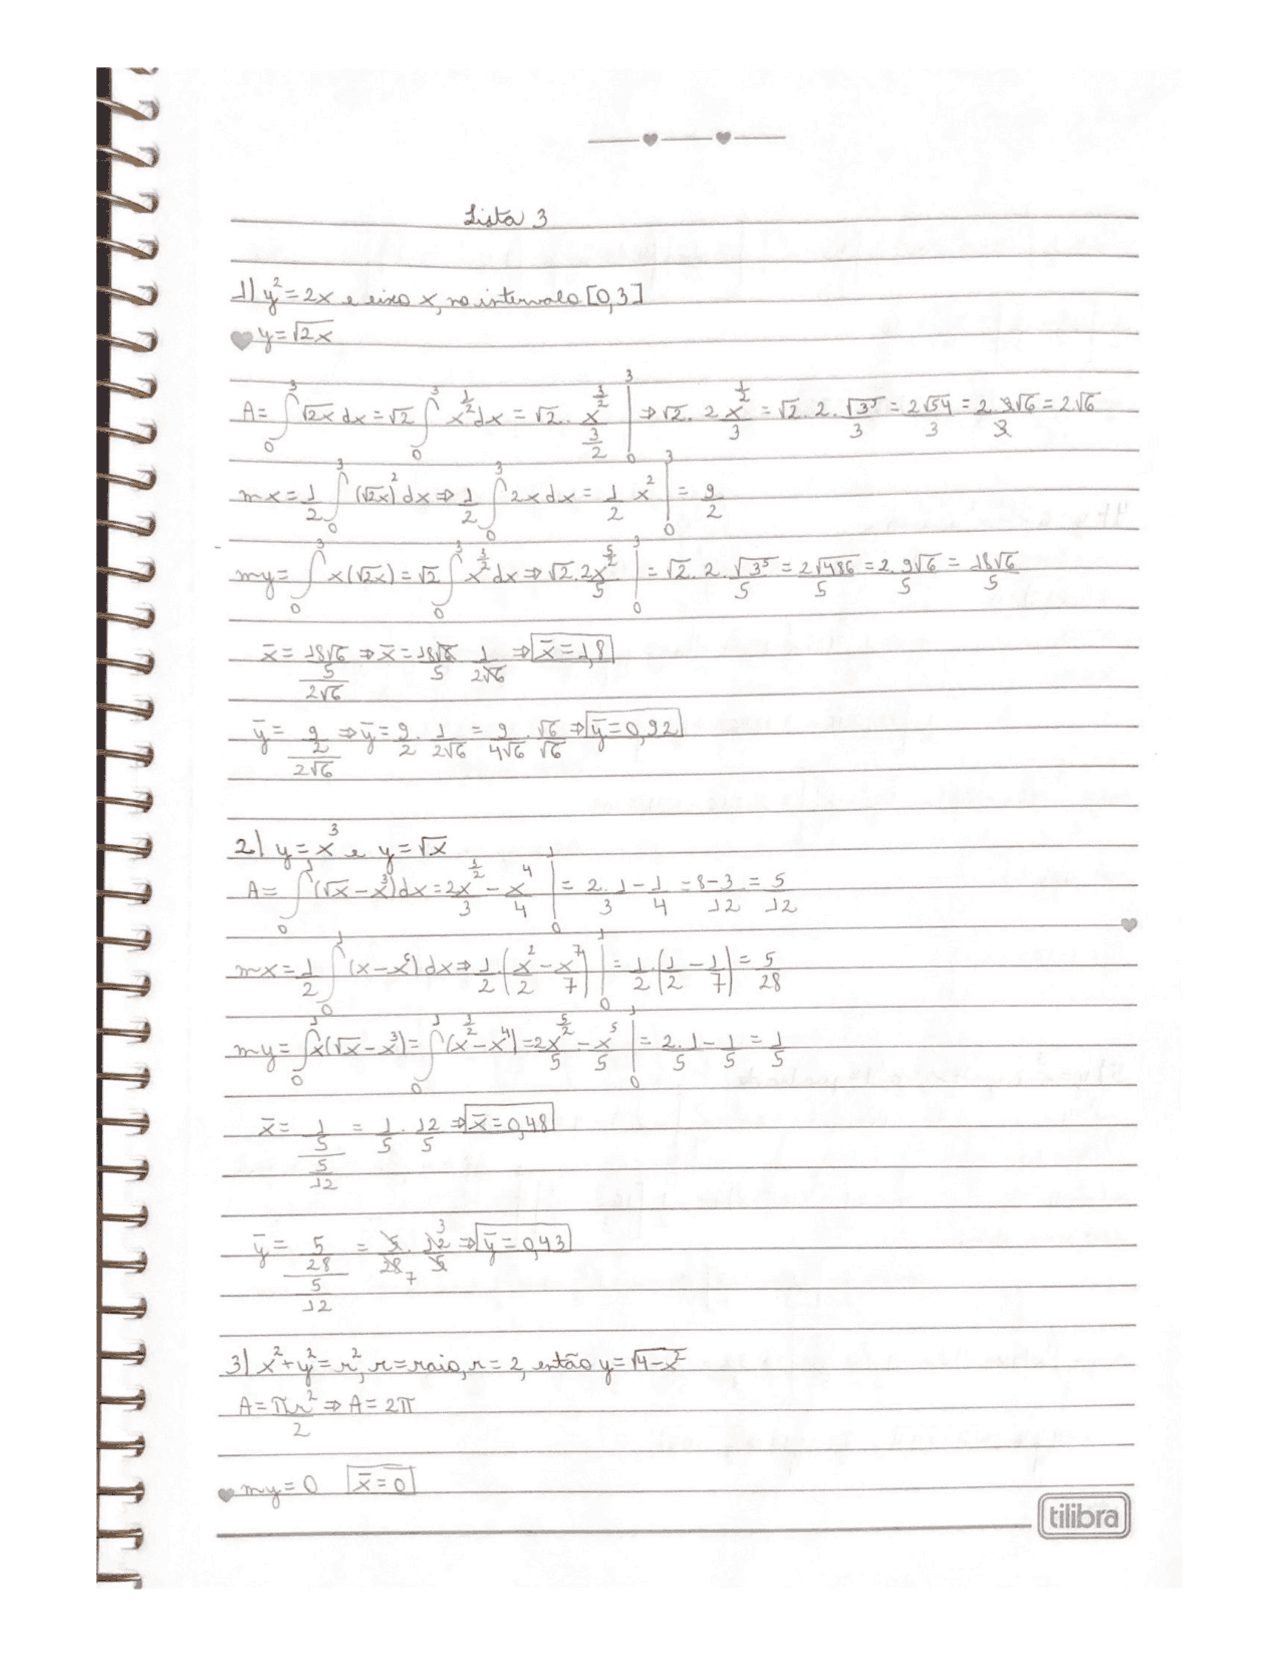 Lista 3
1) y² = 2x e eixo x, no intervalo [0,3]
y = √2x
A = ∫₀³ √2x dx = √2 ∫₀³ x^(1/2) dx = √2 . x^(3/2) / (3/2) |₀³ ⇒ √2 . 2x^(3/2)/3 = √2 . 2 . √3³/3 = 2√54/3 = 2 . 3√6/3 = 2√6
mx = 1/2 ∫₀³ (√2x)² dx ⇒ 1/2 ∫₀³ 2x dx = 1/2 x² |₀³ = 9/2
my = ∫₀³ x(√2x) = √2 ∫₀³ x^(3/2) dx ⇒ √2 . 2x^(5/2)/5 |₀³ = √2 . 2 . √3⁵/5 = 2√486/5 = 2 . 9√6/5 = 18√6/5
x̄ = (18√6/5)/(2√6) ⇒ x̄ = 18√6/5 . 1/(2√6) ⇒ x̄ = 1,8
ȳ = (9/2)/(2√6) ⇒ ȳ = 9/2 . 1/(2√6) = 9/(4√6) . √6/√6 ⇒ ȳ = 0,92
2) y = x³ e y = √x
A = ∫₀¹ (√x - x³) dx = 2x^(3/2)/3 - x⁴/4 |₀¹ = 2 . 1/3 - 1/4 = 8-3/12 = 5/12
mx = 1/2 ∫₀¹ (x - x⁶) dx ⇒ 1/2 . (x²/2 - x⁷/7) |₀¹ = 1/2 . (1/2 - 1/7) = 5/28
my = ∫₀¹ x(√x - x³) = ∫₀¹ (x^(3/2) - x⁴) = 2x^(5/2)/5 - x⁵/5 |₀¹ = 2 . 1/5 - 1/5 = 1/5
x̄ = (1/5)/(5/12) = 1/5 . 12/5 ⇒ x̄ = 0,48
ȳ = (5/28)/(5/12) = 5/28 7 . 12/5 3 ⇒ ȳ = 0,43
3) x² + y² = r², r = raio, r = 2, então y = √4-x²
A = πr²/2 ⇒ A = 2π
my = 0 x̄ = 0
tilibra